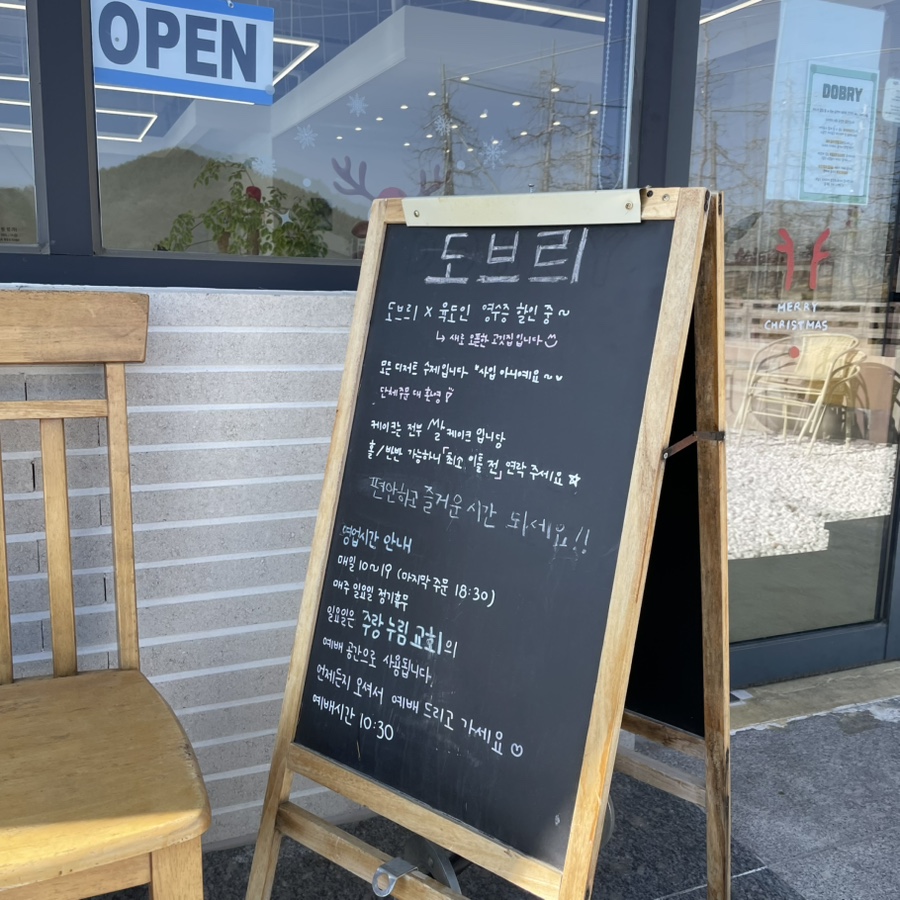 OPEN
DOBRY
MERRY
CHRISTMAS
도브리
도브리 x 육도인 영수증 할인 중 ~
↳ 새로 오픈한 고깃집입니다
모든 디저트 수제입니다 *사입 아니예요 ~
단체주문 대 환영
케이크는 전부 쌀 케이크 입니당
홀/반반 가능하니 「최소 이틀 전」 연락 주세요 ☆
편안하고 즐거운 시간 되세요!!
영업시간 안내
매일 10~19 (마지막 주문 18:30)
매주 일요일 정기휴무
일요일은 주랑 누림 교회의
예배 공간으로 사용됩니다.
언제든지 오셔서 예배 드리고 가세요 ♡
예배시간 10:30